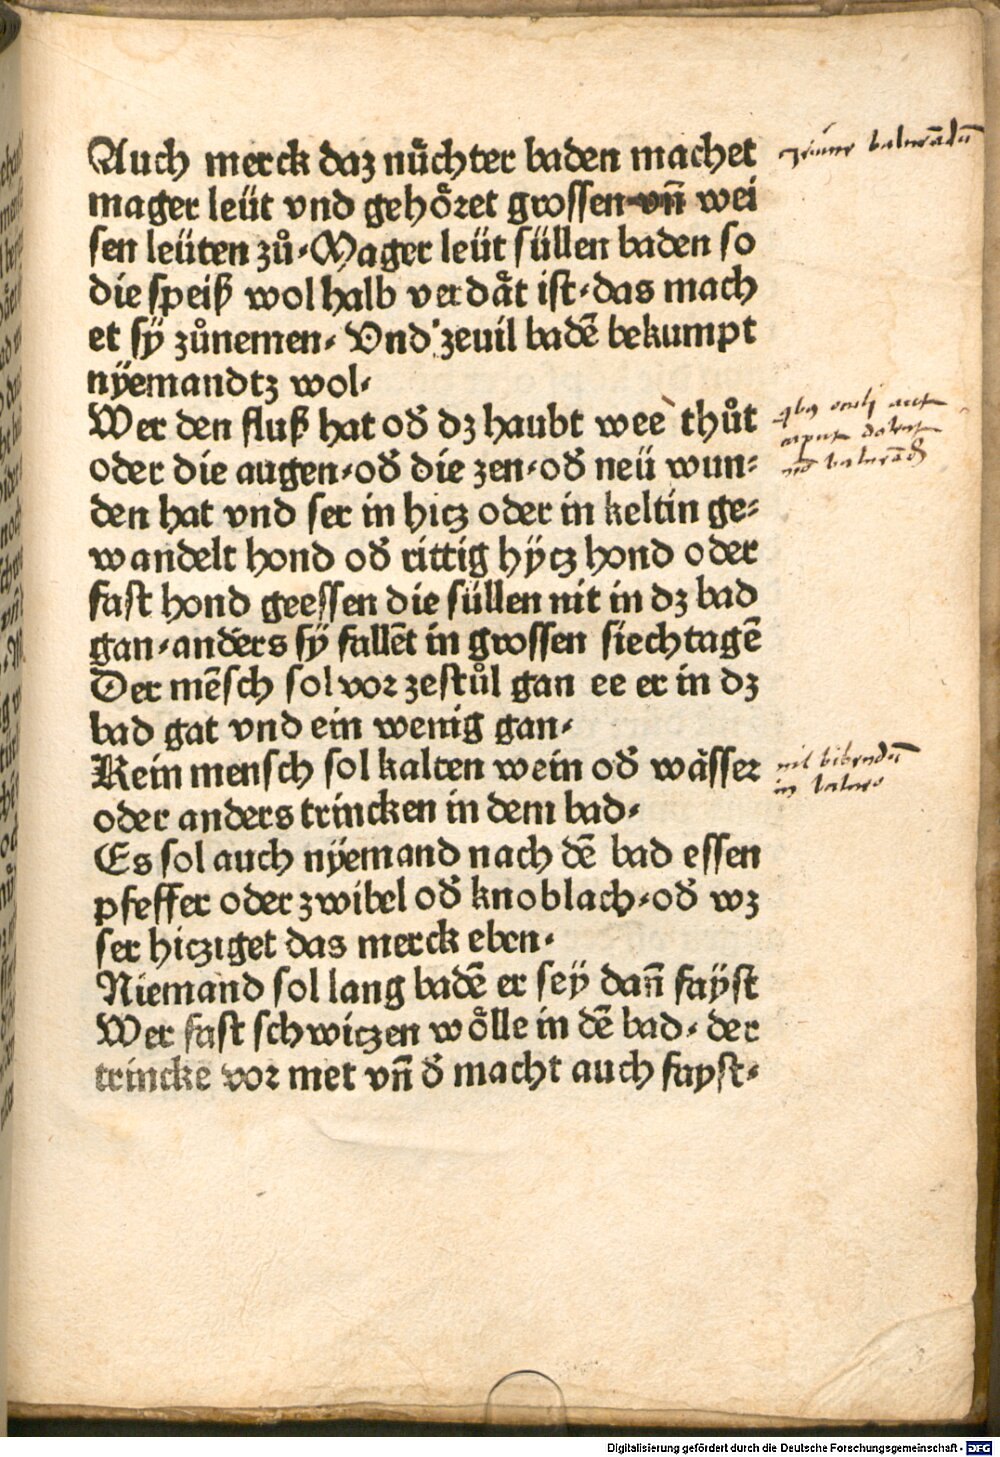 Auch merck daz nüchter baden machet
mager leüt vnd gehöret grossen vñ wei
sen leüten zů. Mager leüt süllen baden so
die speiß wol halb verdät ist. das mach
et sÿ zůnemen. Vnd zeuil badē bekumpt
nÿemandtz wol.
Wer den fluß hat oď dz haubt wee thůt
oder die augen. oď die zen. oď neü wun⸗
den hat vnd ser in hicz oder in keltin ge⸗
wandelt hond oď rittig hÿcz hond oder
fast hond geessen die süllen nit in dz bad
gan. anders sÿ fallēt in grossen siechtagē
Der mēsch sol vor zestůl gan ee er in dz
bad gat vnd ein wenig gan.
Kein mensch sol kalten wein oď wässer
oder anders trincken in dem bad.
Es sol auch nÿemand nach dē bad essen
pfeffer oder zwibel oď knoblach. oď wz
ser hicziget das merck eben.
Niemand sol lang badē er sey dañ faÿst
Wer fast schwiczen wölle in dē bad. der
trincke vor met vñ ď macht auch fayst.
balneādū
qbꝰ oculi aut
caput dolent
nō balneādū
nil bibendū
in balneo
Digitalisierung gefördert durch die Deutsche Forschungsgemeinschaft - DFG